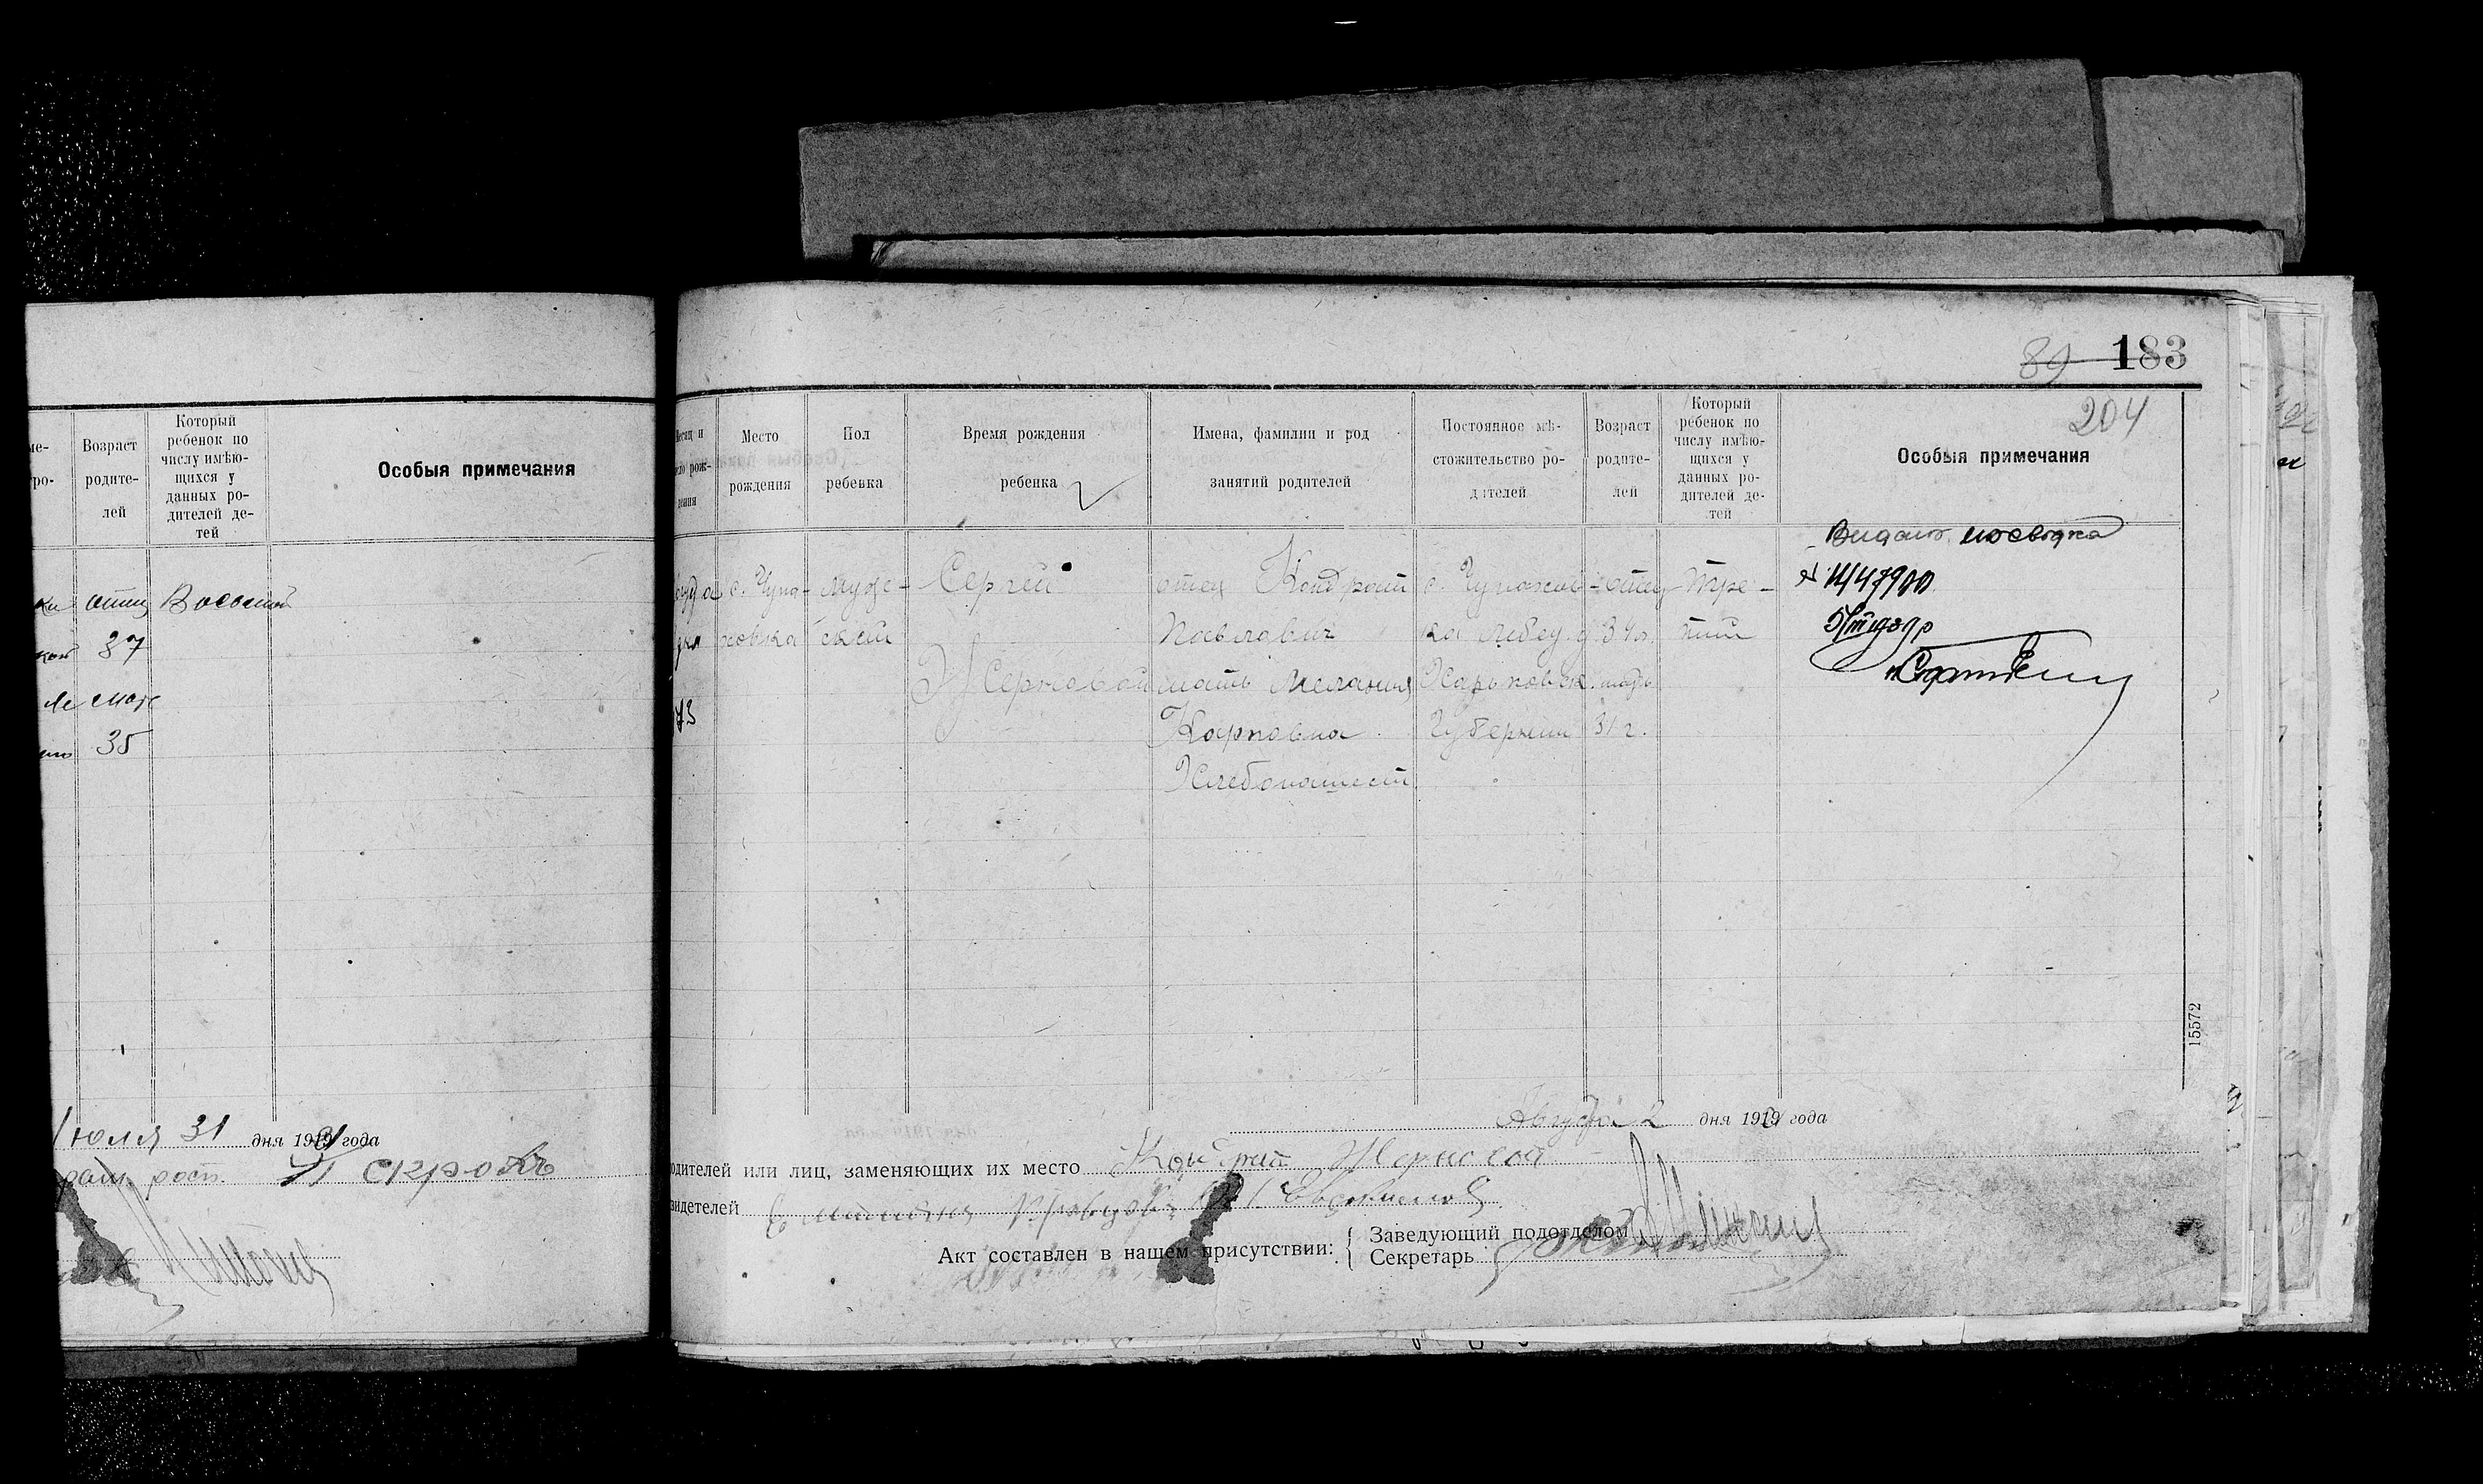 Возраст
родите-
лей
Который
ребенок по
числу имѣю-
щихся у
данных ро-
дителей де-
тей
Особыя примечания
отец
37
35
Июля 31 дня 19 года
183
89
204
Место
рождения
Пол
ребенка
Время рождения
ребенка
Имена, фамилии и род
занятий родителей
Постоянное мѣ-
стожительство ро-
дителей
Возраст
родите-
лей
Который
ребенок по
числу имѣю-
щихся у
данных ро-
дителей де-
тей
Особыя примечания
с. Чупа-
ховка
Муже-
ский
Сергей
Жерновой
отец Кондрат
Павлович
мать Мелания
Карповна
Хлебопашест
с. Чупахов-
ка Лебед. у
Харьковск.
Губернии
отец
34 г.
мать
31 г.
Тре-
тий
73
15572
Августа 2 дня 19 года
одителей или лиц, заменяющих их место Кондрат Жерновой
видетелей
Акт составлен в нашем присутствии:
Заведующий подотделом
Секретарь